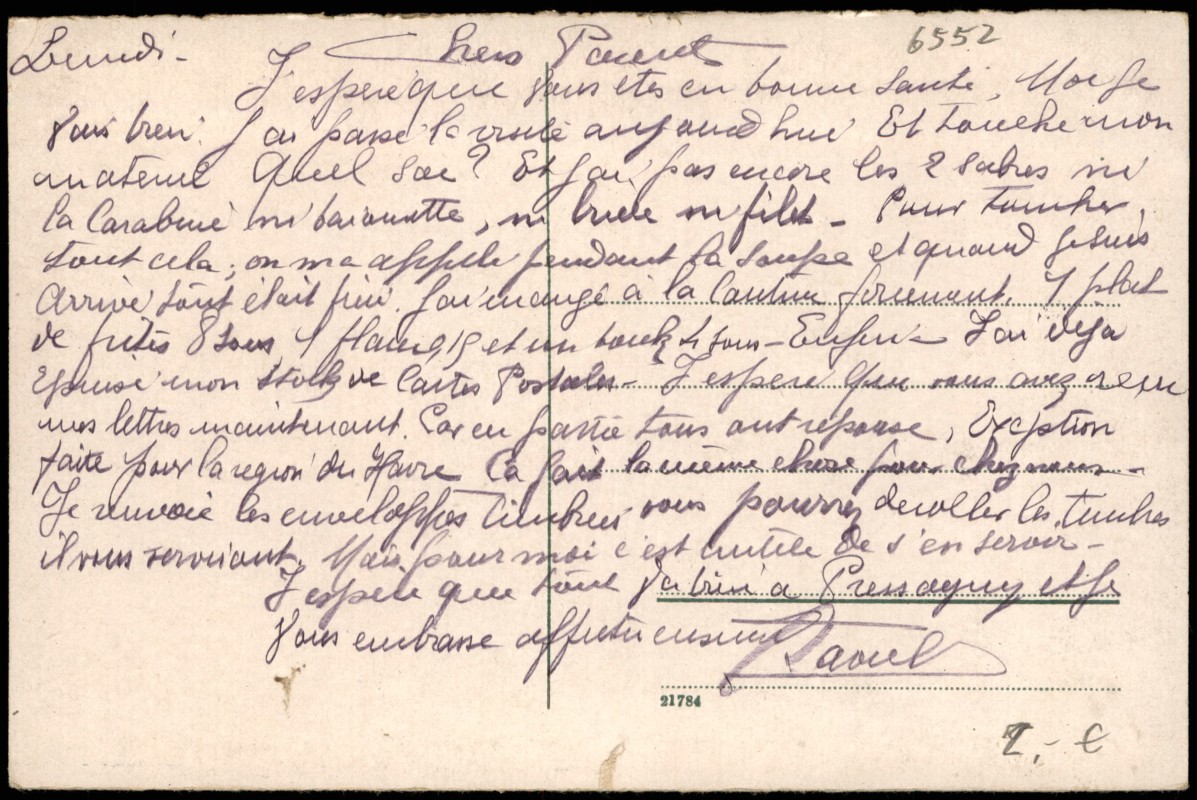 6552
Lundi - Chers Parents
J'espère que vous êtes en bonne santé, Moi je
vais bien. J'ai passé la visite aujourd'hui Et touché mon
matériel Quel sac? Et j'ai pas encore les 2 sabres ni
la Carabine ni baionette, ni bride ni filet - Pour toucher,
tout cela, on m'a appelé pendant la soupe et quand je suis
arrivé tout était fini. J'ai mangé à la Cantine forcément. 1 plat
de frites 8 sous, 1 et un 4 sous - Enfin - J'ai déjà
épuisé mon stock de Cartes Postales - J'espère que vous avez reçu
mes lettres maintenant. Car en partie tous ont réponse, Exception
faite pour la région du Havre Ca fait la même chose pour chez nous -
Je renvoie les enveloppes Timbrées vous pourrez décoller les timbres
il vous serviront, Mais pour moi c'est inutile de s'en servir -
J'espère que tout va bien a Pressagny et je
Vous embrasse affectueusement
Raoul
21784
2,- €